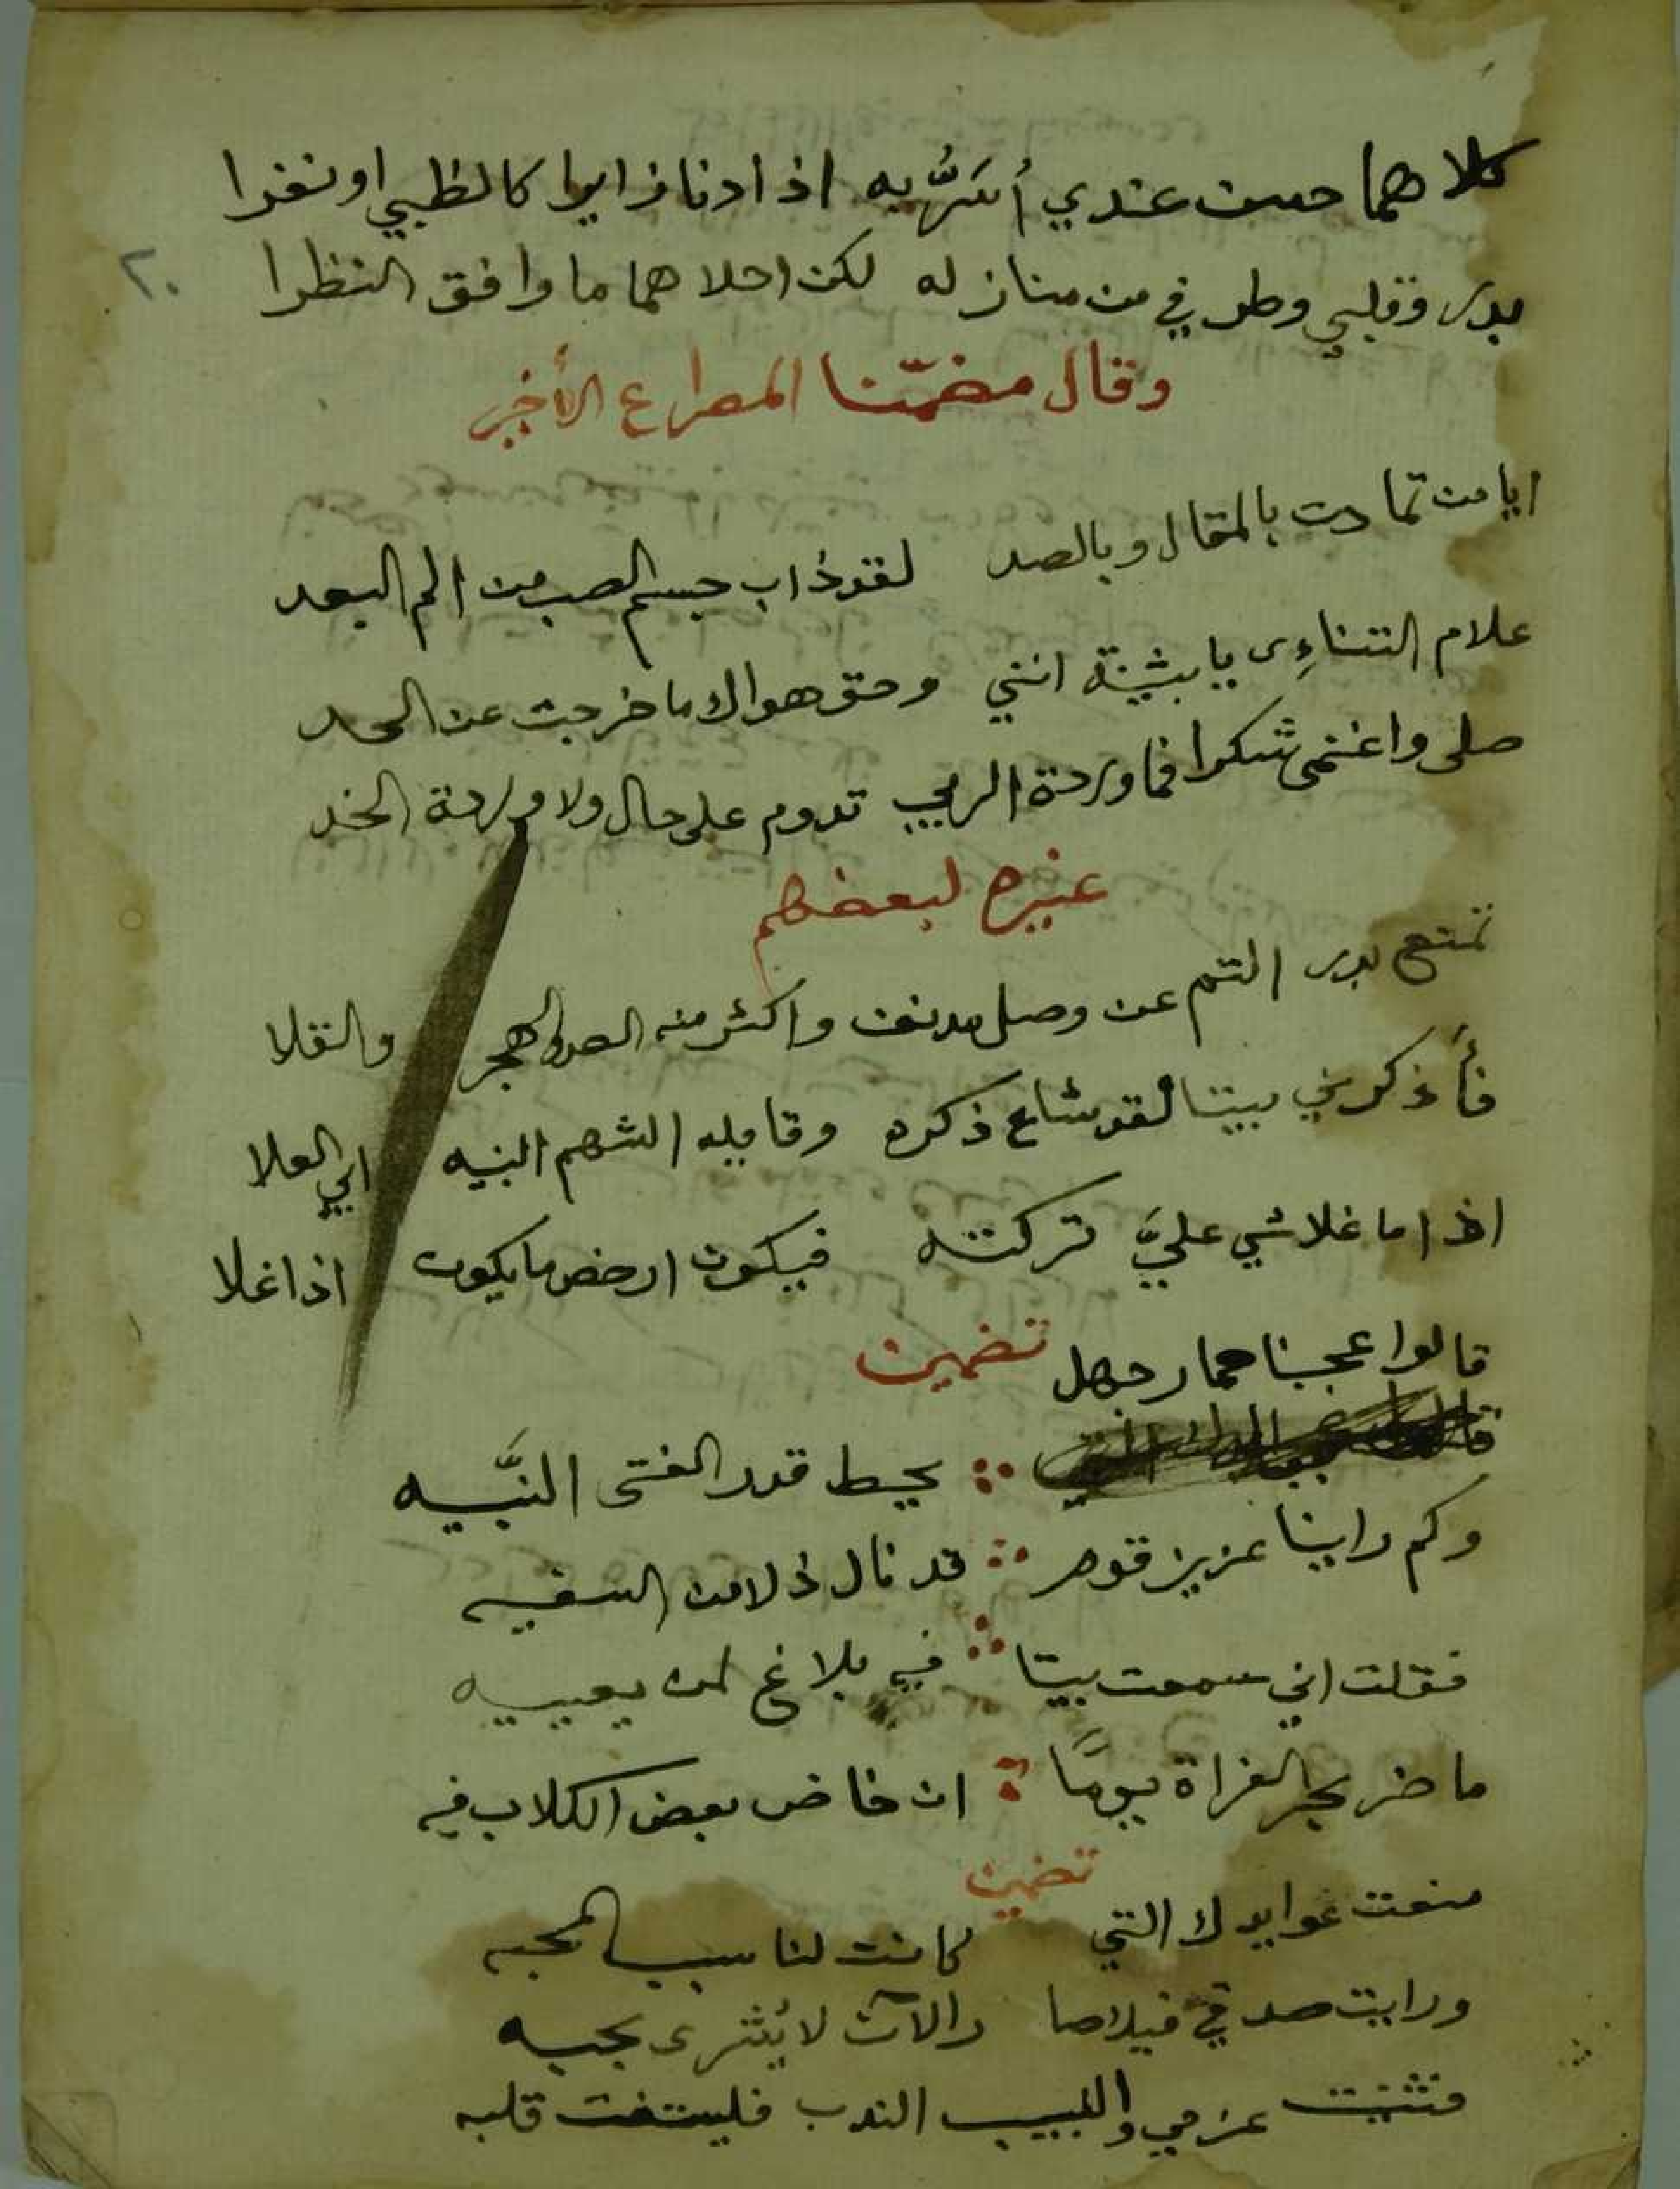 كلاهما حسن عندي أُسَرُّ به اذا دنا زايرا كالظبي او نفرا
بدر وقلبي وطرفي من منازله لكن احلاهما ما وافق النظرا
٢٠
وقال مضمّنا المصراع الأخير
ايا من تمادت بالمقال وبالصد لقد ذاب جسم الصب من الم البعد
علام التناءِى يا بثينة انني وحق هواك ما خرجت عن الحد
صلى واغنمى شكرا فما وردة الربي تدوم على حال ولا وردة الخد
غيره لبعضهم
تمنع بدر التم عن وصل مدنف واكثر منه الصد والهجر والقلا
فأذكرني بيتا لقد شاع ذكره وقايله الشهم النبيه ابي العلا
اذا ما غلا شي عليَّ تركته فيكون ارخص ما يكون اذا غلا
تضمين
قالوا عجبنا حمار جهل
يحط قدر الفتى النَّبيه
وكم راينا عزيز قوم قد نال ذلا من السفيه
فقلت اني سمعت بيتا فيه بلاغ لمن يعييه
ما ضر بحر الفراة يومًا ان خاض بعض الكلاب فيه
تضمين
منعت عوايدك التي كانت لنا سبب المحبه
ورايت صدقي فيك ضا والآن لا يُشرى بحبه
فثنيت عزمي واللبيب الندب فليستفت قلبه